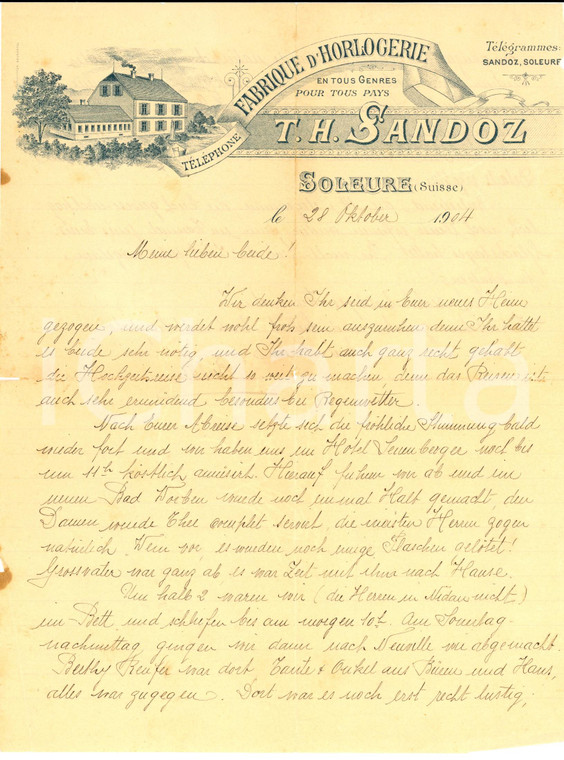 Télégrammes:
SANDOZ, SOLEURE
FABRIQUE D'HORLOGERIE
EN TOUS GENRES
POUR TOUS PAYS
TÉLÉPHONE
T. H. SANDOZ
SOLEURE (Suisse)
le 28 Oktober 1904
Meine lieben beide!
Wir denken Ihr seid in Euer neues Heim
gezogen, und werdet wohl froh sein auszuruhen denn Ihr hättet
es beide sehr nötig, und Ihr habt auch ganz recht gehabt
die Hochzeitsreise nicht so weit zu machen, denn das Reisen ist
auch sehr ermüdend besonders bei Regenwetter.
Nach Eurer Abreise setzte sich die fröhliche Stimmung bald
wieder fort und wir haben uns im Hôtel noch bis
um 11h köstlich amüsirt. Hierauf fuhren wir ab und im
neuen Bad Worben wurde noch einmal Halt gemacht, den
Damen wurde Thee complet servirt, die meisten Herren zogen
natürlich Wein vor, es wurden noch einige Flaschen gelötet!
Grossvater war ganz ab es war Zeit mit ihm nach Hause.
Um halb 2 waren wir (die Herren in Nidau nicht)
im Bett und schliefen bis am morgen 10h. Am Sonntag-
nachmittag gingen wir dann nach Neuville wie abgemacht.
Berthy Renfer war dort, Tante & Onkel aus Büren und Hans,
alles war zugegen. Dort war es noch erst recht lustig,